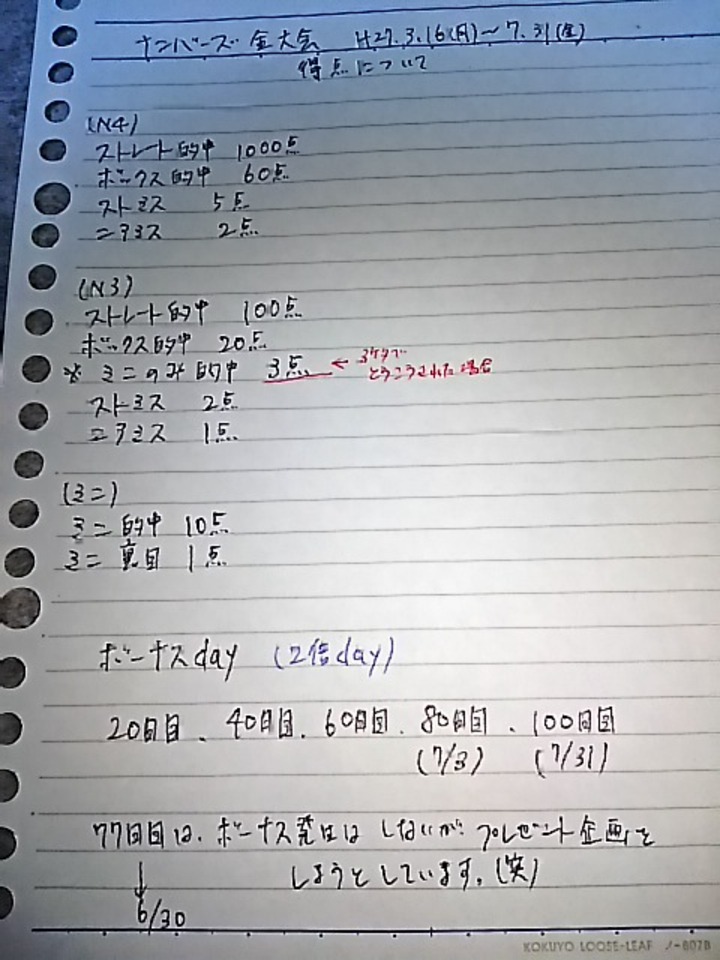 ナンバーズ 金大会 H27.3.16(月)〜7.31(金)
得点について
(N4)
ストレート的中 1000点
ボックス的中 60点
ストミス 5点
ニアミス 2点
(N3)
ストレート的中 100点
ボックス的中 20点
※ ミニのみ的中 3点 ← 3ケタで
とうこうされた場合
ストミス 2点
ニアミス 1点
(ミニ)
ミニ的中 10点
ミニ裏目 1点
ボーナスday (2倍day)
20日目、40日目、60日目、80日目、100日目
(7/3) (7/31)
77日目は、ボーナス発生は しないが プレゼント企画を
↓ しようとしています。(笑)
6/30
KOKUYO LOOSE-LEAF ノ-807B